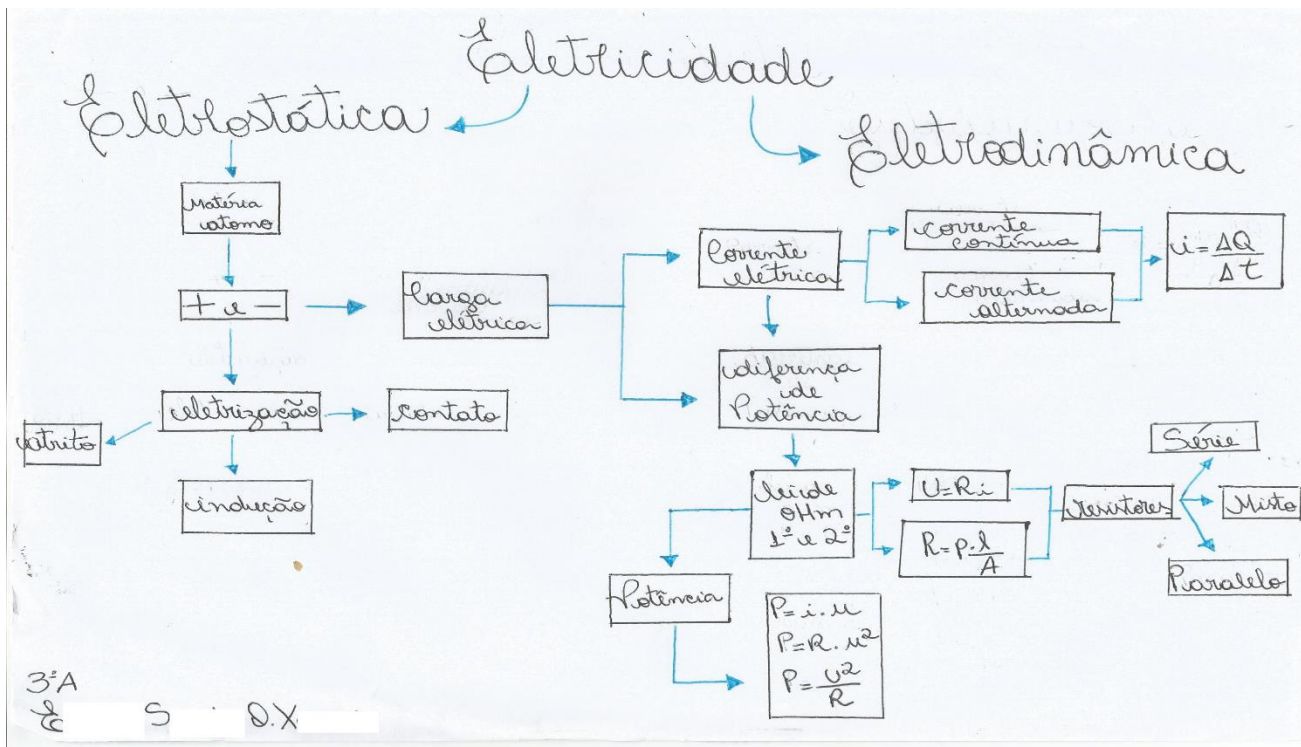 Eletricidade
Eletrostática
Eletrodinâmica
Matéria
atomo
+ e -
Carga
elétrica
eletrização
contato
atrito
indução
Corrente
elétrica
corrente
contínua
corrente
alternada
i = ΔQ
Δt
diferença
de
Potência
lei de
oHm
1ª e 2ª
U=Ri
R=ρ.l
A
resistores
Série
Misto
Paralelo
Potência
P= i. u
P=R. u²
P= U²
R
3ºA
E S D.X